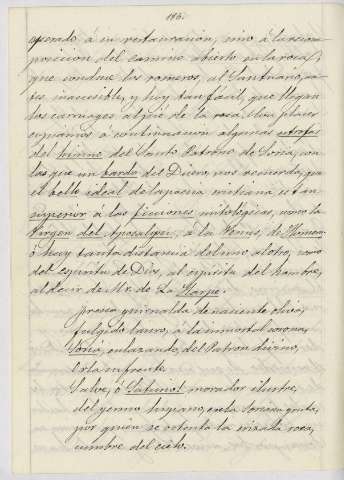 186.
operado á su restauracion, sino á la recom-
posicion del camino abierto en la roca,
que conduce los romeros, al Santuario, an-
tes inaccesible, y hoy tan facil, que llegan
los carruages al pié de la roca. Con placer
copiamos á continuacion algunas estrofas
del himno del Santo Patrono de Soria, con
las que un bardo del Duero, nos recuerda, que
el bello ideal de la poesia cristiana es tan
superior á las ficciones mitológicas, como la
Virgen del Apocalipsi, á la Venus, de Homero
ó hay tanta distancia del uno al otro, como
del espiritu de Dios, al espiritu del hombre,
al decir de Mr. de La Harpe.
Precia guirnalda de naciente oliva,
fulgido lauro, á la inmortal corona,
Soria, enlazando, del Patron divino,
Orla su frente.
Salve, ó Saturio! morador ilustre,
del yermo hispano, en la Soriana gruta,
por quien se ostenta la erizada roca,
cumbre del cielo.